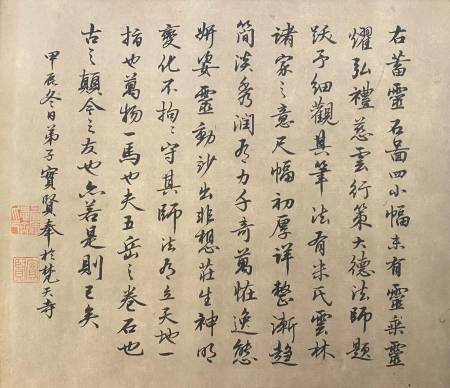 右蓄靈石圖四小幅末有靈乘靈
燿弘禮慈雲行策大德法師題
跋予細觀其筆法有米氏雲林
諸家之意尺幅初厚詳整漸趨
簡淡秀潤力千奇萬恠逸態
妍姿靈動出非想莊生神明
變化不拘〻守其師法立天地一
指也萬物一馬也夫五岳之卷石也
古之顛今之友也亦若是則已矣
甲辰冬日弟子實賢奉於梵天寺